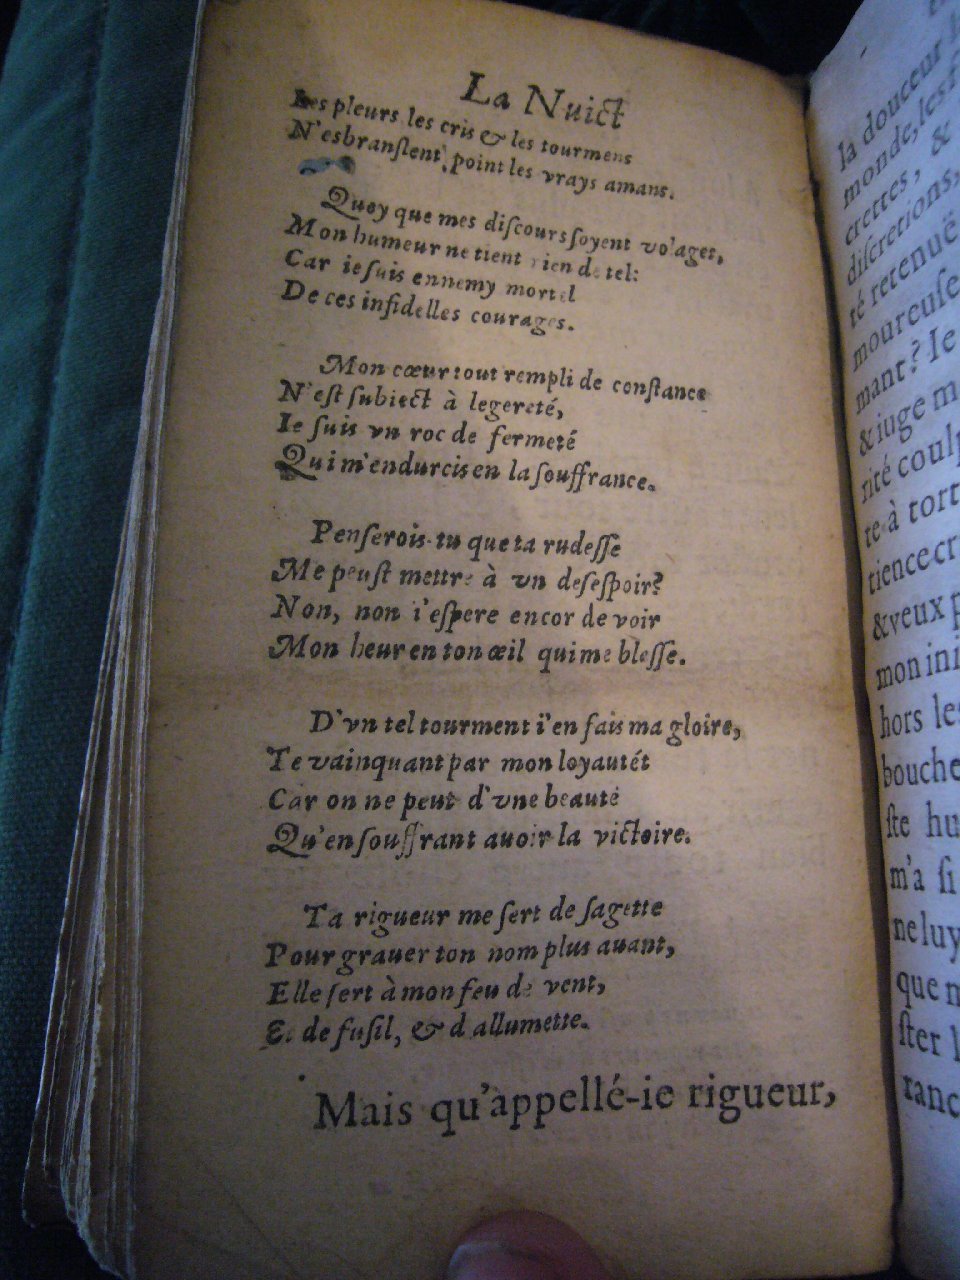 La Nuict
Les pleurs, les cris & les tourmens
N'esbranſlent point les vrays amans.
Quoy que mes diſcours ſoyent vo'ages,
Mon humeur ne tient rien de tel:
Car ie ſuis ennemy mortel
De ces infidelles courages.
Mon cœur tout rempli de conſtance
N'eſt ſubiect à legereté,
Ie ſuis vn roc de fermeté
Qui m'endurcis en la ſouffrance.
Penſerois-tu que ta rudeſſe
Me peuſt mettre à vn deſeſpoir?
Non, non i'eſpere encor de voir
Mon heur en ton œil qui me bleſſe.
D'vn tel tourment i'en fais ma gloire,
Te vainquant par mon loyautét
Car on ne peut d'vne beauté
Qu'en ſouffrant auoir la victoire.
Ta rigueur me ſert de ſagette
Pour grauer ton nom plus auant,
Elle ſert à mon feu de vent,
Et de fuſil, & d'allumette.
Mais qu'appellé-ie rigueur,
la douceur
monde, les
crettes, &
diſcretions,
té retenuë
moureuſe
mant? Ie
& iuge m
rité coulp
te à tort
tience cr
& veux p
mon ini
hors les
bouche
ſte hu
m'a ſi
ne luy
que m
ſter l
ranc